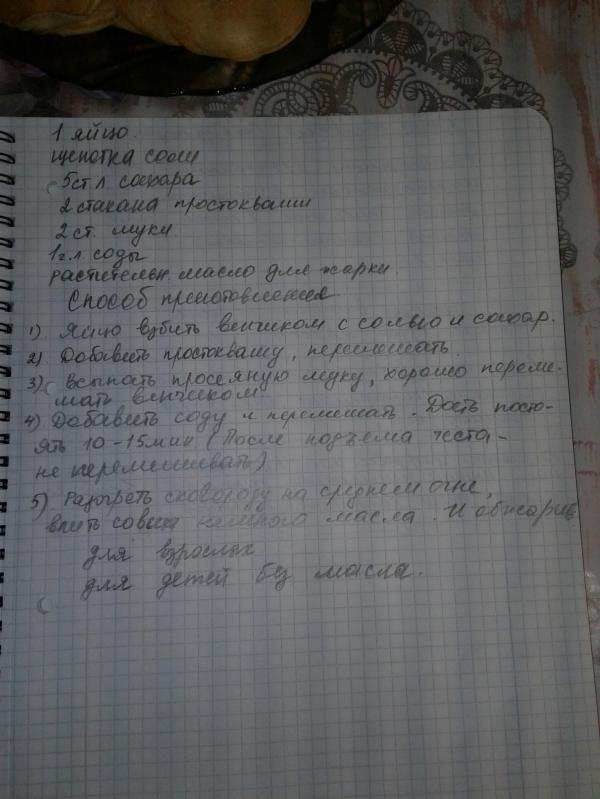 1 яйцо.
щепотка соли
5 ст.л. сахара
2 стакана простокваши
2 ст. муки
1 ч.л. соды
растительн. масло для жарки
Способ приготовления
1) Яйцо взбить венчиком с солью и сахар.
2) Добавить простоквашу, перемешать.
3) Всыпать просеяную муку, хорошо переме-
шать венчиком
4) Добавить соду и перемешать. Дать посто-
ять 10-15мин (После подъема теста-
не перемешивать)
5) Разогреть сковороду на среднем огне,
влить совсем немного масла. И обжарив.
для взрослых
для детей без масла.